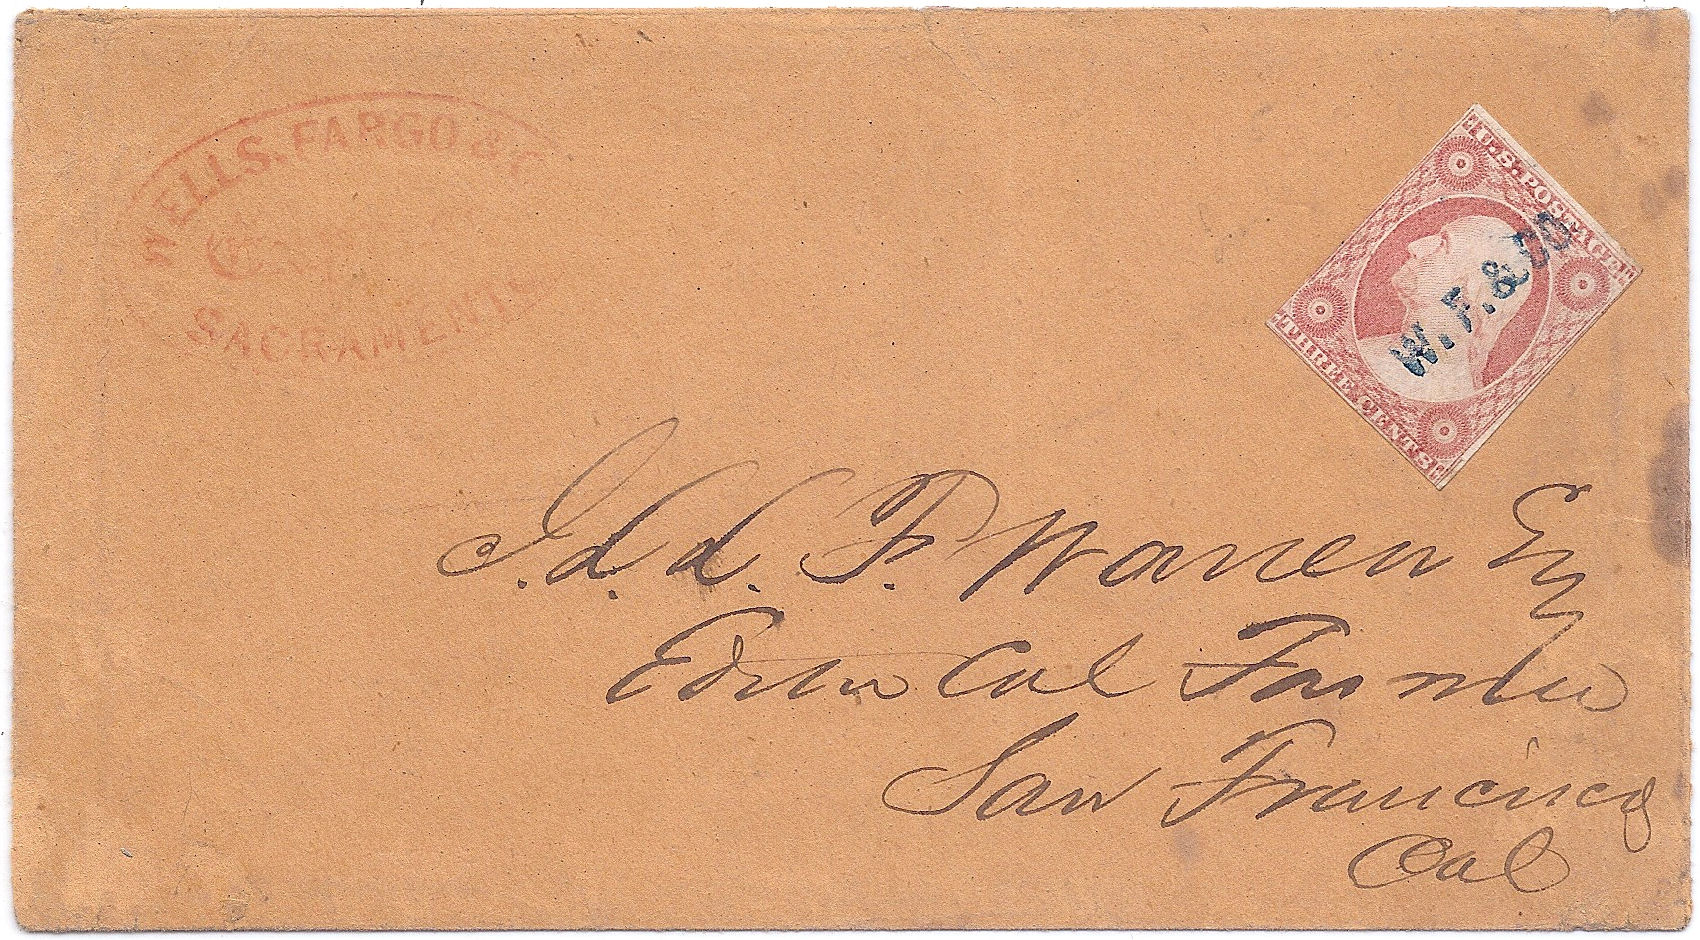 WELLS, FARGO & C
SACRAMENTO
U.S. POSTAGE
THREE CENTS
W. F. & CO
J. L. L. F. Warren Esq
Editor Cal Farmer
San Francisco
Cal